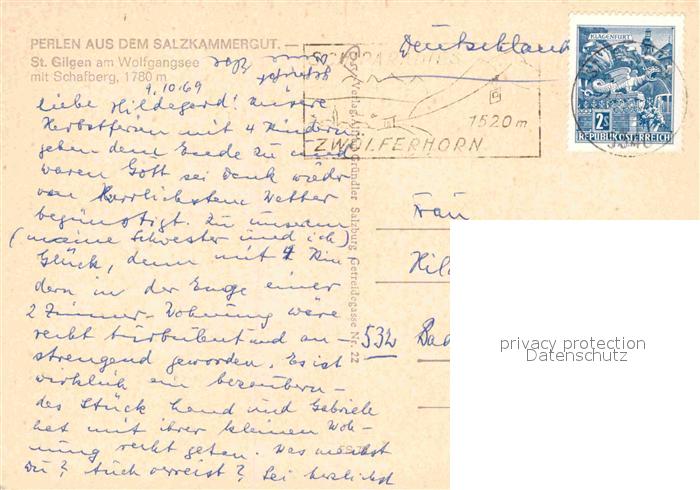 PERLEN AUS DEM SALZKAMMERGUT. —
St. Gilgen am Wolfgangsee
mit Schafberg, 1780 m
9.10.69
liebe Hildegard! Unsere
Herbstferien mit 4 Kindern
gehen dem Ende zu und
waren Gott sei Dank wieder
von herrlichstem Wetter
begünstigt. Zu unserem
(meine Schwester und ich)
Glück, denn mit 4 Kin-
dern in der Enge einer
2 Zimmer-Wohnung wäre
recht turbulent und an-
strengend geworden. Es ist
wirklich ein bezaubern-
des Stück Land und Gabriele
hat mit ihrer kleinen Woh-
nung recht getan. Was machst
Du? Auch verreist? Sei herzlichst
Verlag Gründler Salzburg Getreidegasse Nr. 22
Deutschland
1520 m
ZWÖLFERHORN
KLAGENFURT
2S
REPUBLIK ÖSTERREICH
Frau
Hil
532 Bad
privacy protection
Datenschutz